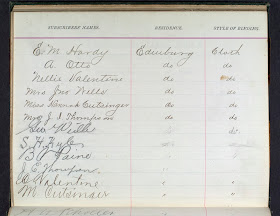 SUBSCRIBERS' NAMES. RESIDENCE. STYLE OF BINDING.
E M Hardy Edinburg Cloth
A Otto do do
Nellie Valentine do do
Mrs Jno Wells do do
Miss Hannah Cutsinger do do
Mrs J I Thompson do do
Geo Wells " "
S. H. Kyle " "
B Paine " "
J E Thompson " "
Valentine " "
M Cutsinger " "